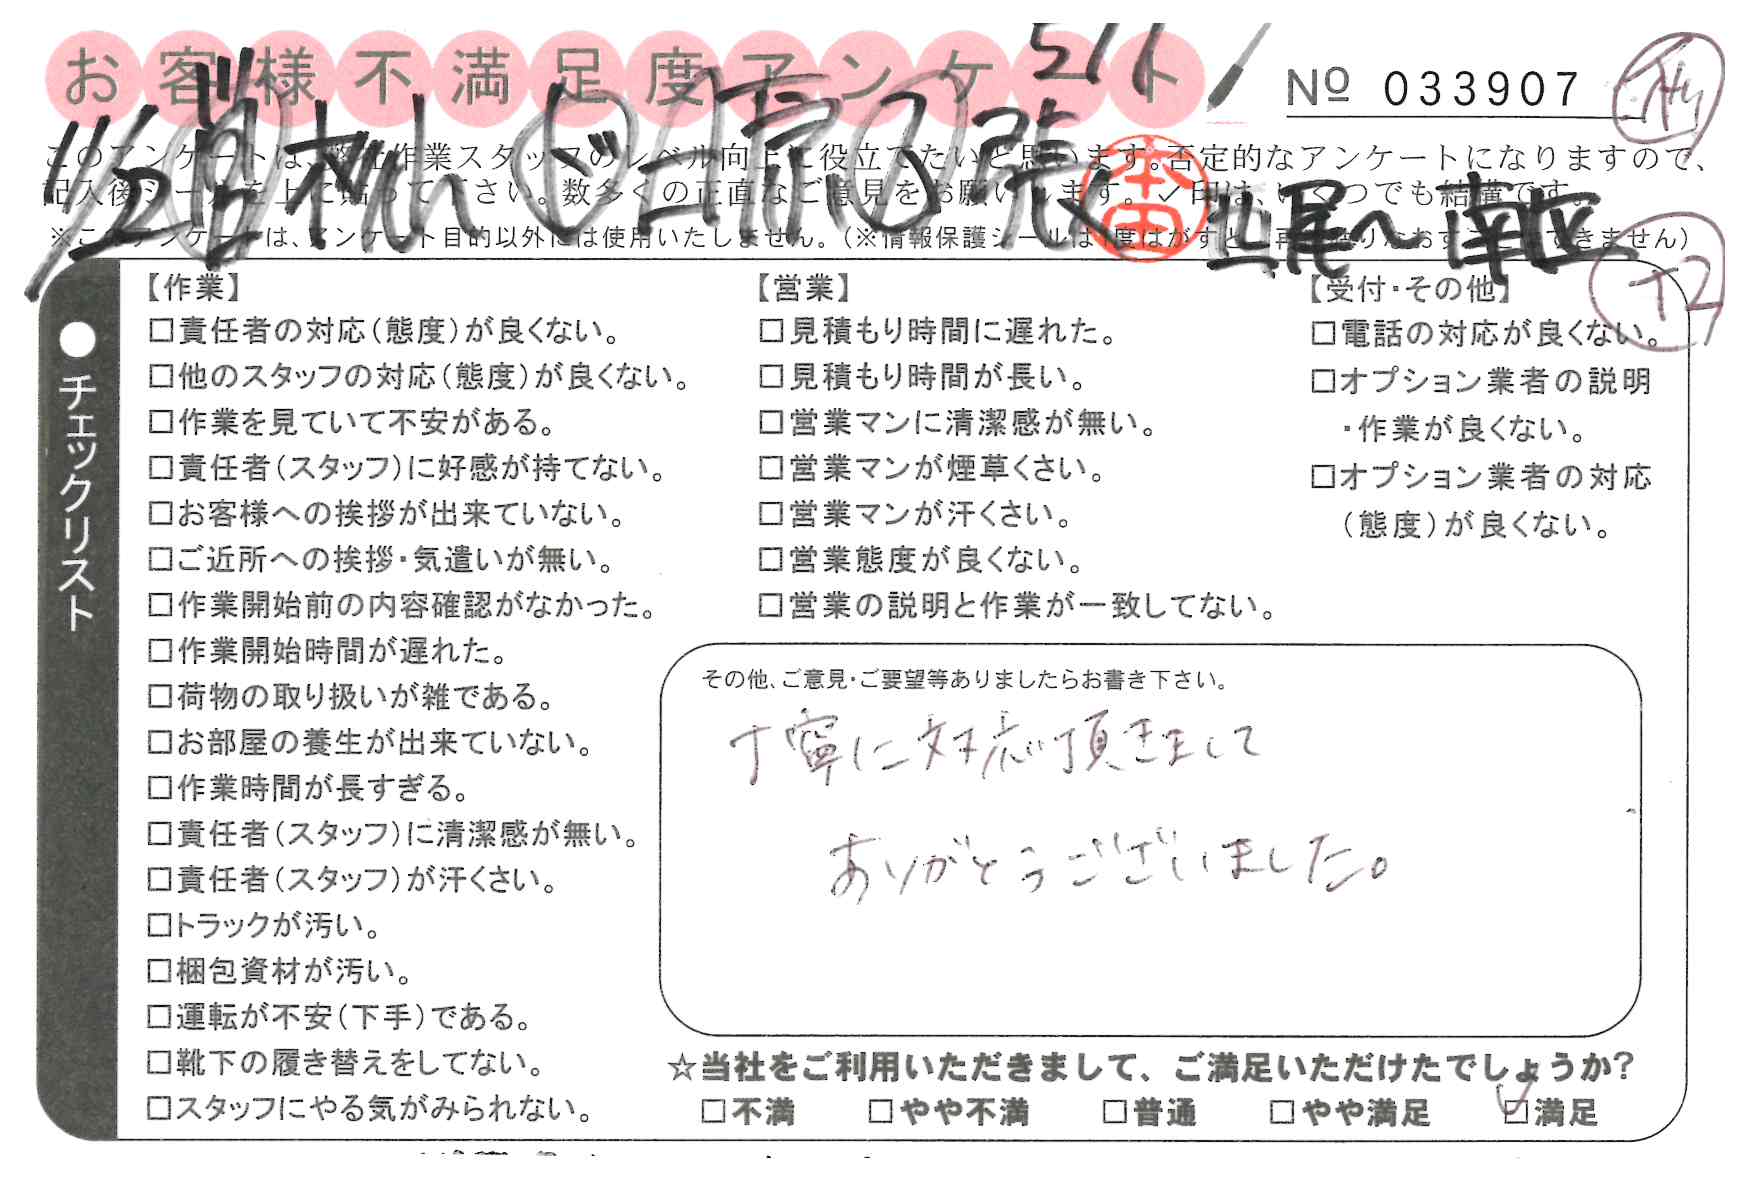 お客様不満足度アンケート
No 033907
このアンケートは、弊社作業スタッフのレベル向上に役立てたいと思います。否定的なアンケートになりますので、
記入後シールを上に貼って下さい。数多くの正直なご意見をお願いします。✓印は、いくつでも結構です。
※このアンケートは、アンケート目的以外には使用いたしません。(※情報保護シールは1度はがすと、再度貼りなおすことはできません)
本田
尾へ 南区
T2
●チェックリスト
【作業】
□責任者の対応(態度)が良くない。
□他のスタッフの対応(態度)が良くない。
□作業を見ていて不安がある。
□責任者(スタッフ)に好感が持てない。
□お客様への挨拶が出来ていない。
□ご近所への挨拶・気遣いが無い。
□作業開始前の内容確認がなかった。
□作業開始時間が遅れた。
□荷物の取り扱いが雑である。
□お部屋の養生が出来ていない。
□作業時間が長すぎる。
□責任者(スタッフ)に清潔感が無い。
□責任者(スタッフ)が汗くさい。
□トラックが汚い。
□梱包資材が汚い。
□運転が不安(下手)である。
□靴下の履き替えをしてない。
□スタッフにやる気がみられない。
【営業】
□見積もり時間に遅れた。
□見積もり時間が長い。
□営業マンに清潔感が無い。
□営業マンが煙草くさい。
□営業マンが汗くさい。
□営業態度が良くない。
□営業の説明と作業が一致してない。
【受付・その他】
□電話の対応が良くない。
□オプション業者の説明
・作業が良くない。
□オプション業者の対応
(態度)が良くない。
その他、ご意見・ご要望等ありましたらお書き下さい。
丁寧に対応頂きまして
ありがとうございました。
☆当社をご利用いただきまして、ご満足いただけたでしょうか?
□不満 □やや不満 □普通 □やや満足 ☑満足